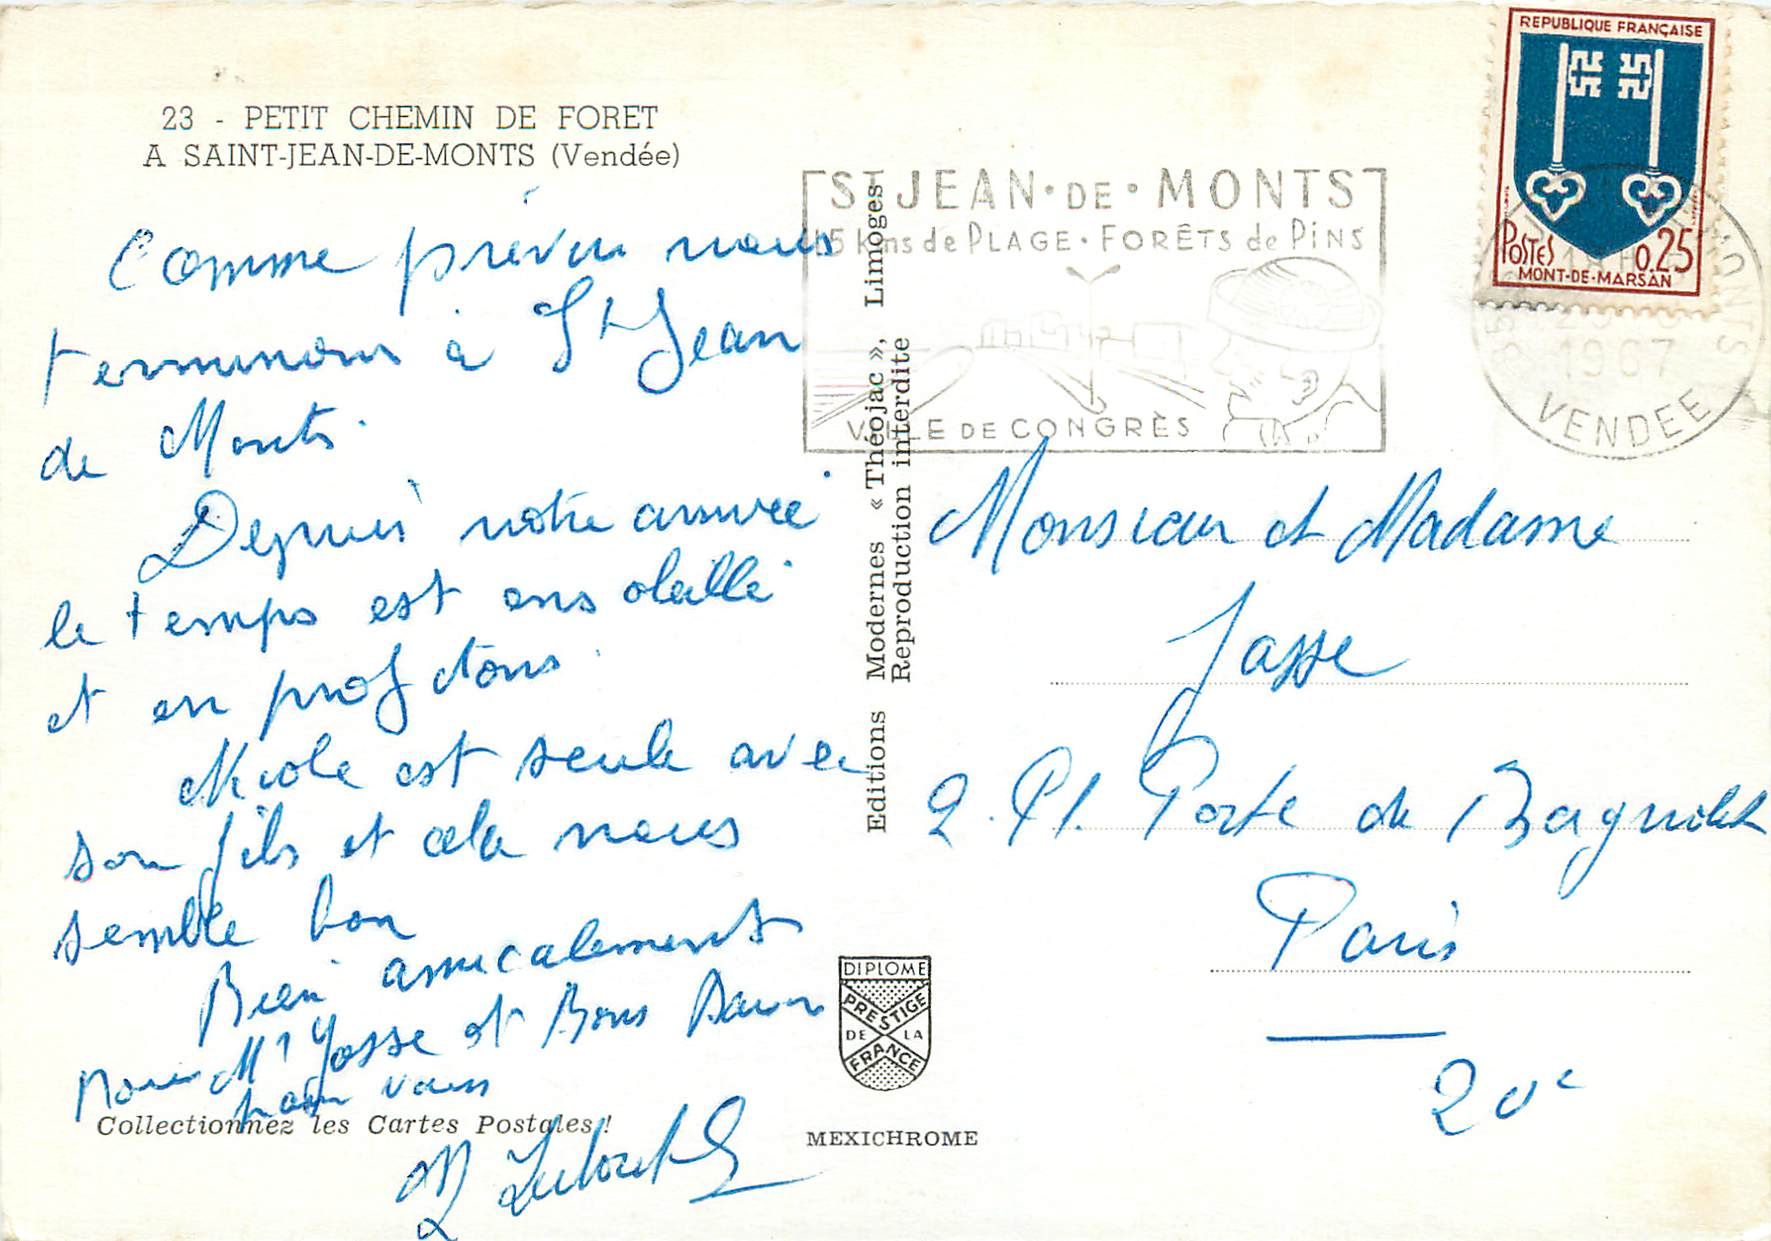 23 - PETIT CHEMIN DE FORET
A SAINT-JEAN-DE-MONTS (Vendée)
Comme prévu nous
terminons à St Jean
de Monts.
Depuis notre arrivée
le temps est ensoleillé
et en profitons.
Nicole est seule avec
son fils et cela nous
semble bon
Bien amicalement
pour Mr Josse et Bons
pour vous
Collectionnez les Cartes Postales!
Editions Modernes « Théojac », Limoges
Reproduction interdite
DIPLOME
PRESTIGE
DE LA
FRANCE
MEXICHROME
ST JEAN · DE · MONTS
15 kms de PLAGE · FORÊTS de PINS
VILLE DE CONGRÈS
REPUBLIQUE FRANÇAISE
POSTES 0,25
MONT-DE-MARSAN
1967
VENDEE
Monsieur et Madame
Josse
2. Pl. Porte de Bagnolet
Paris
20e